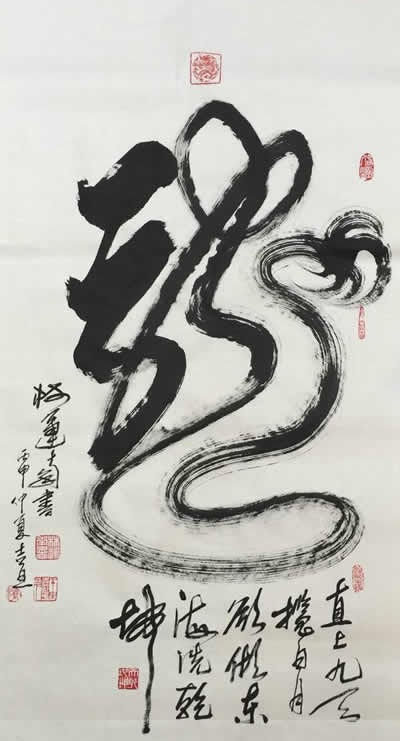 龍
直上九天
揽日月
欲倾东
海洗乾
坤
書
丙申仲夏吉旦